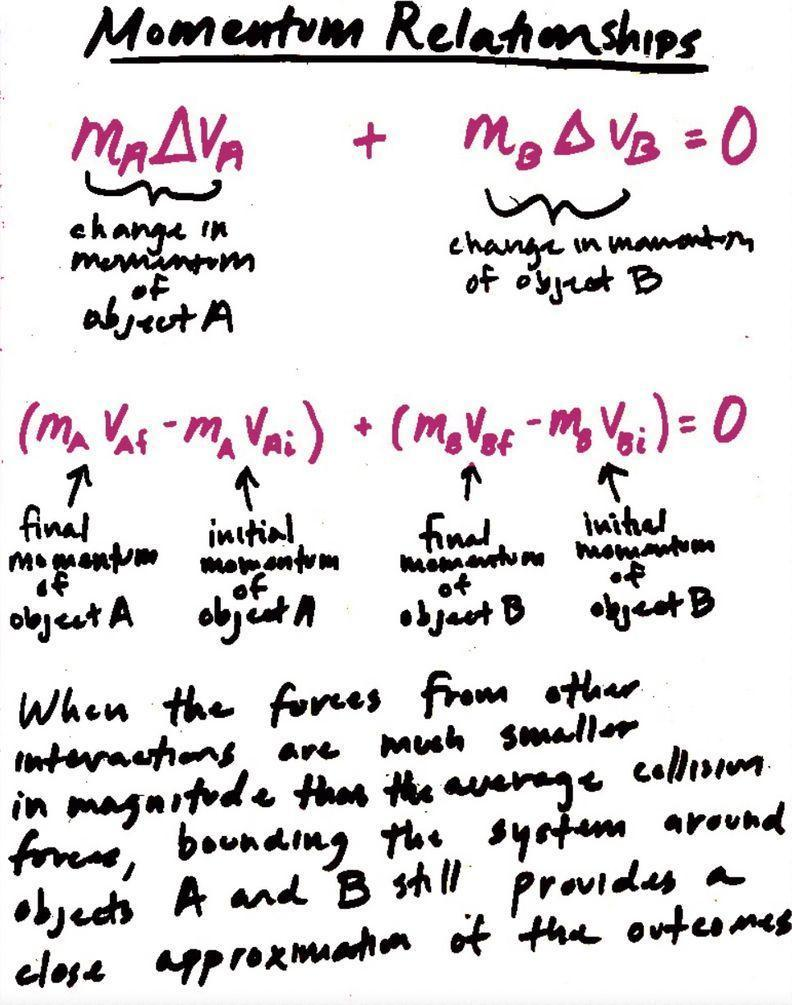 Momentum Relationships
mAΔVA + mBΔVB = 0
change in momentum of object A
change in momentum of object B
(mA VAf - mA VAi) + (mB VBf - mB VBi) = 0
final momentum of object A
initial momentum of object A
final momentum of object B
initial momentum of object B
When the forces from other
interactions are much smaller
in magnitude than the average collision
forces, bounding the system around
objects A and B still provides a
close approximation of the outcomes